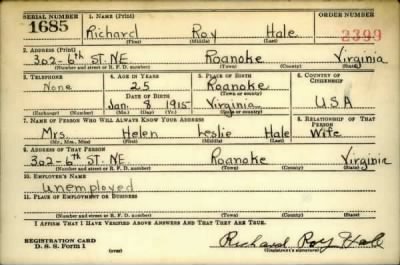 SERIAL NUMBER 1. NAME (Print) ORDER NUMBER
1685 Richard Roy Hale 2399
(First) (Middle) (Last)
2. ADDRESS (Print)
302-6th ST. NE Roanoke Virginia
(Number and street or R. F. D. number) (Town) (County) (State)
3. TELEPHONE 4. AGE IN YEARS 5. PLACE OF BIRTH 6. COUNTRY OF CITIZENSHIP
None 25 Roanoke
DATE OF BIRTH (Town or county)
Jan. 8 1915 Virginia USA
(Exchange) (Number) (Mo.) (Day) (Yr.) (State or country)
7. NAME OF PERSON WHO WILL ALWAYS KNOW YOUR ADDRESS 8. RELATIONSHIP OF THAT PERSON
Mrs. Helen Leslie Hale Wife
(Mr., Mrs., Miss) (First) (Middle) (Last)
9. ADDRESS OF THAT PERSON
302-6th ST. NE. Roanoke Virginia
(Number and street or R. F. D. number) (Town) (County) (State)
10. EMPLOYER'S NAME
Unemployed
11. PLACE OF EMPLOYMENT OR BUSINESS
(Number and street or R. F. D. number) (Town) (County) (State)
I AFFIRM THAT I HAVE VERIFIED ABOVE ANSWERS AND THAT THEY ARE TRUE.
REGISTRATION CARD
D. S. S. Form 1 (over) Richard Roy Hale
(Registrant's signature)